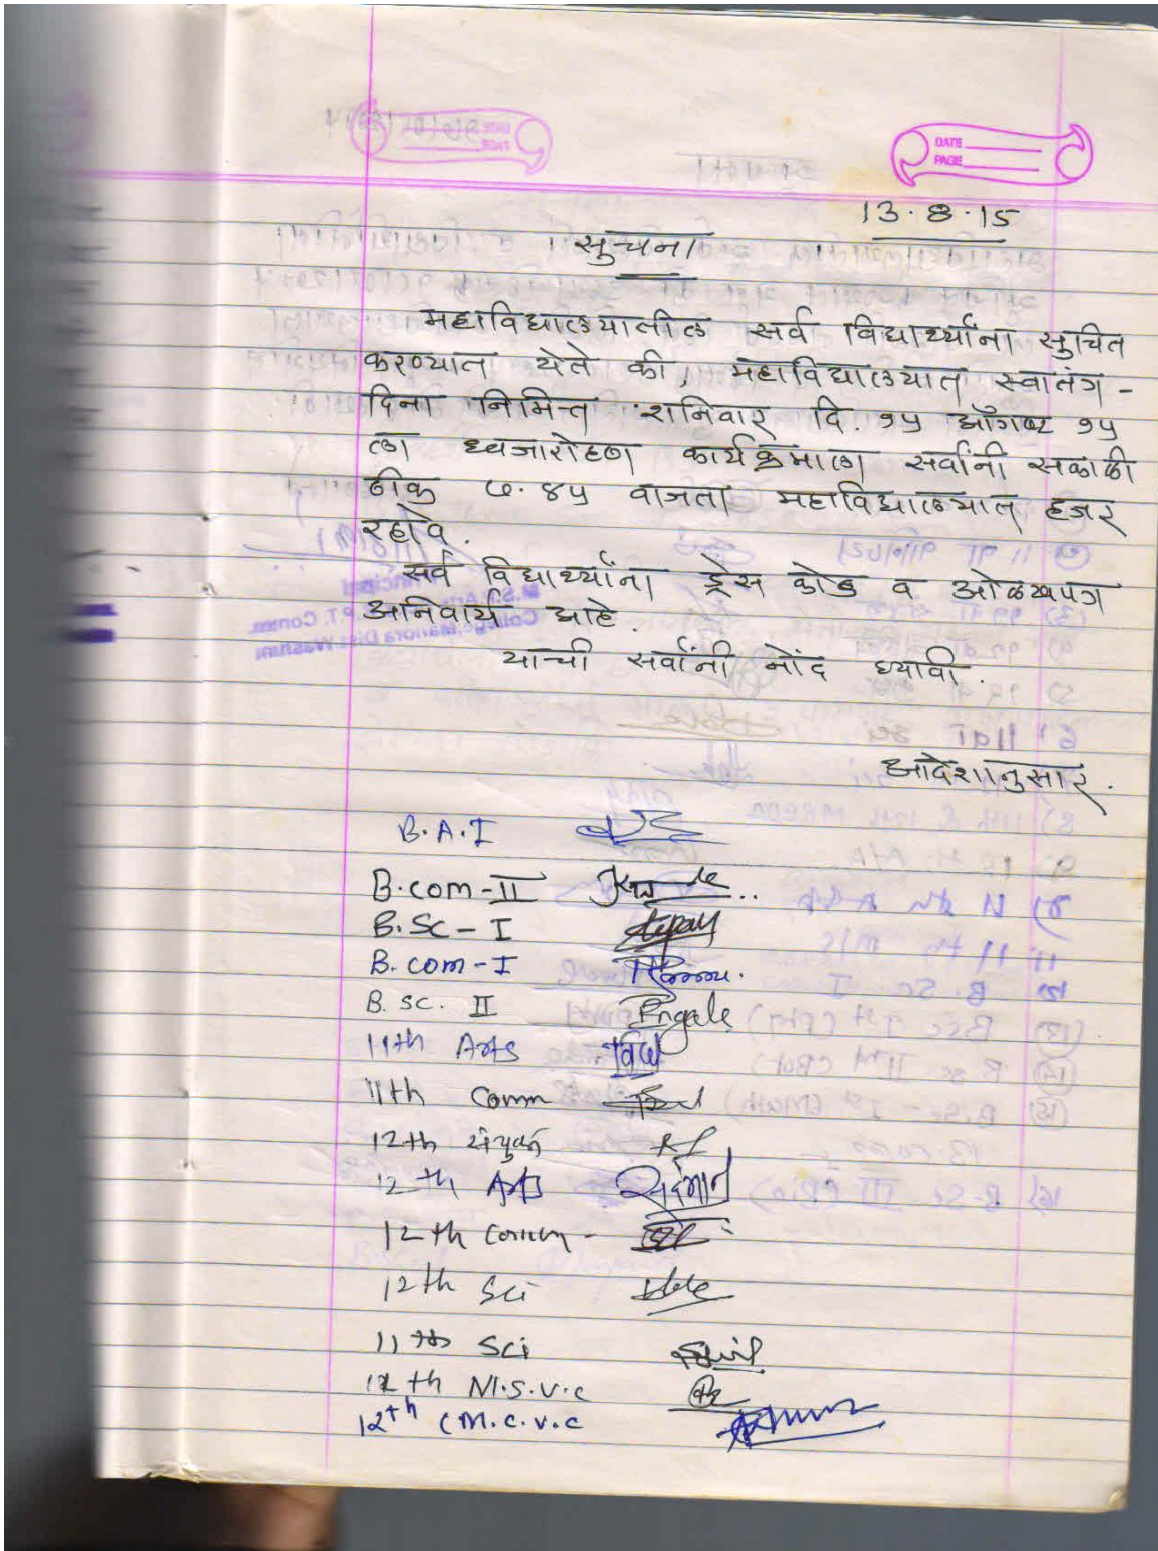 DATE
PAGE
13.8.15
सुचना
महाविद्यालयातील सर्व विद्यार्थ्यांना सुचित
करण्यात येते की, महाविद्यालयात स्वातंत्र -
दिना निमित्त शनिवार दि. १५ ऑगष्ट १५
ला ध्वजारोहण कार्यक्रमाला सर्वांनी सकाळी
ठीक ७.४५ वाजता महाविद्यालयात हजर
रहावे.
सर्व विद्यार्थ्यांना ड्रेस कोड व ओळखपत्र
अनिवार्य आहे.
याची सर्वांनी नोंद घ्यावी.
आदेशानुसार.
B.A.I
B.com-II
B.Sc-I
B.com-I
B.sc. II Pingale
11th Arts
11th Comm
12th संयुक्त
12th Arts
12th Comm -
12th Sci
11th Sci
12th M.S.V.C
12th (M.C.V.C